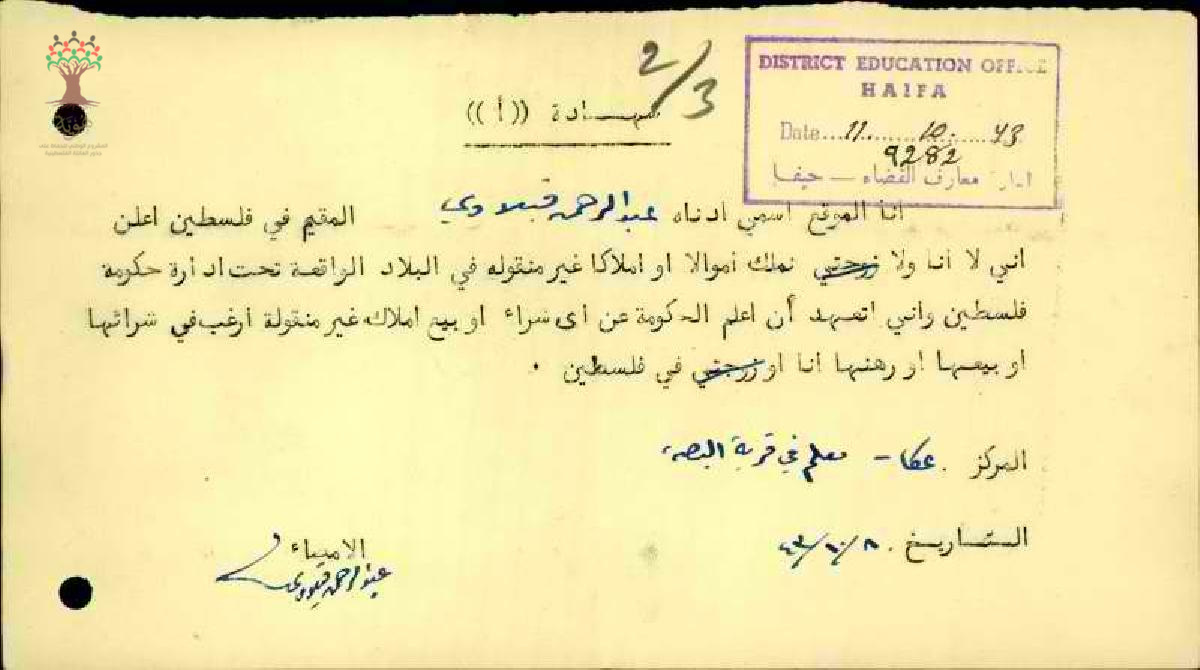 2/3
DISTRICT EDUCATION OFFICE
HAIFA
Date...11......10....43
9282
معارف القضاء — حيفا
شهـــادة ((أ))
انا الموقع اسمي ادناه عبدالرحمن قبلاوي المقيم في فلسطين اعلن
اني لا أنا ولا زوجتي نملك أموالا او املاكا غير منقوله في البلاد الواقعة تحت ادارة حكومة
فلسطين واني اتعهد أن اعلم الحكومة عن اى شراء او بيع املاك غير منقولة أرغب في شرائها
او بيعها او رهنها انا او زوجتي في فلسطين .
المركز . عكا - معلم في قرية البصه
التاريخ . ٨/١٠/٤٣
الامضاء
عبدالرحمن قبلاوي